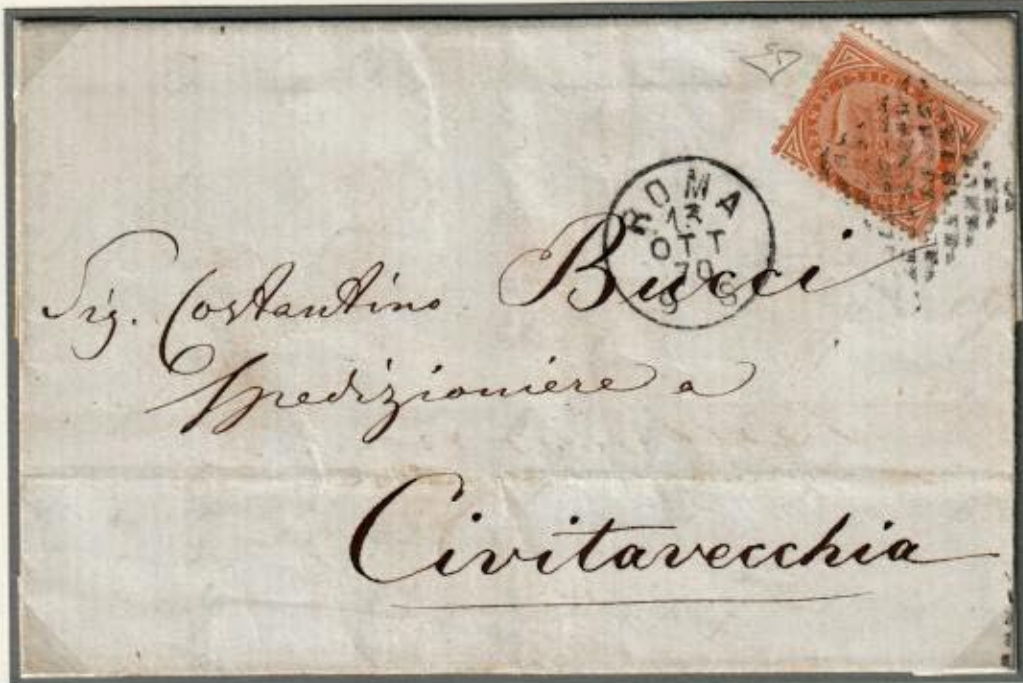 ROMA
13
OTT
70
Sig. Costantino Bucci
Spedizioniere a
Civitavecchia